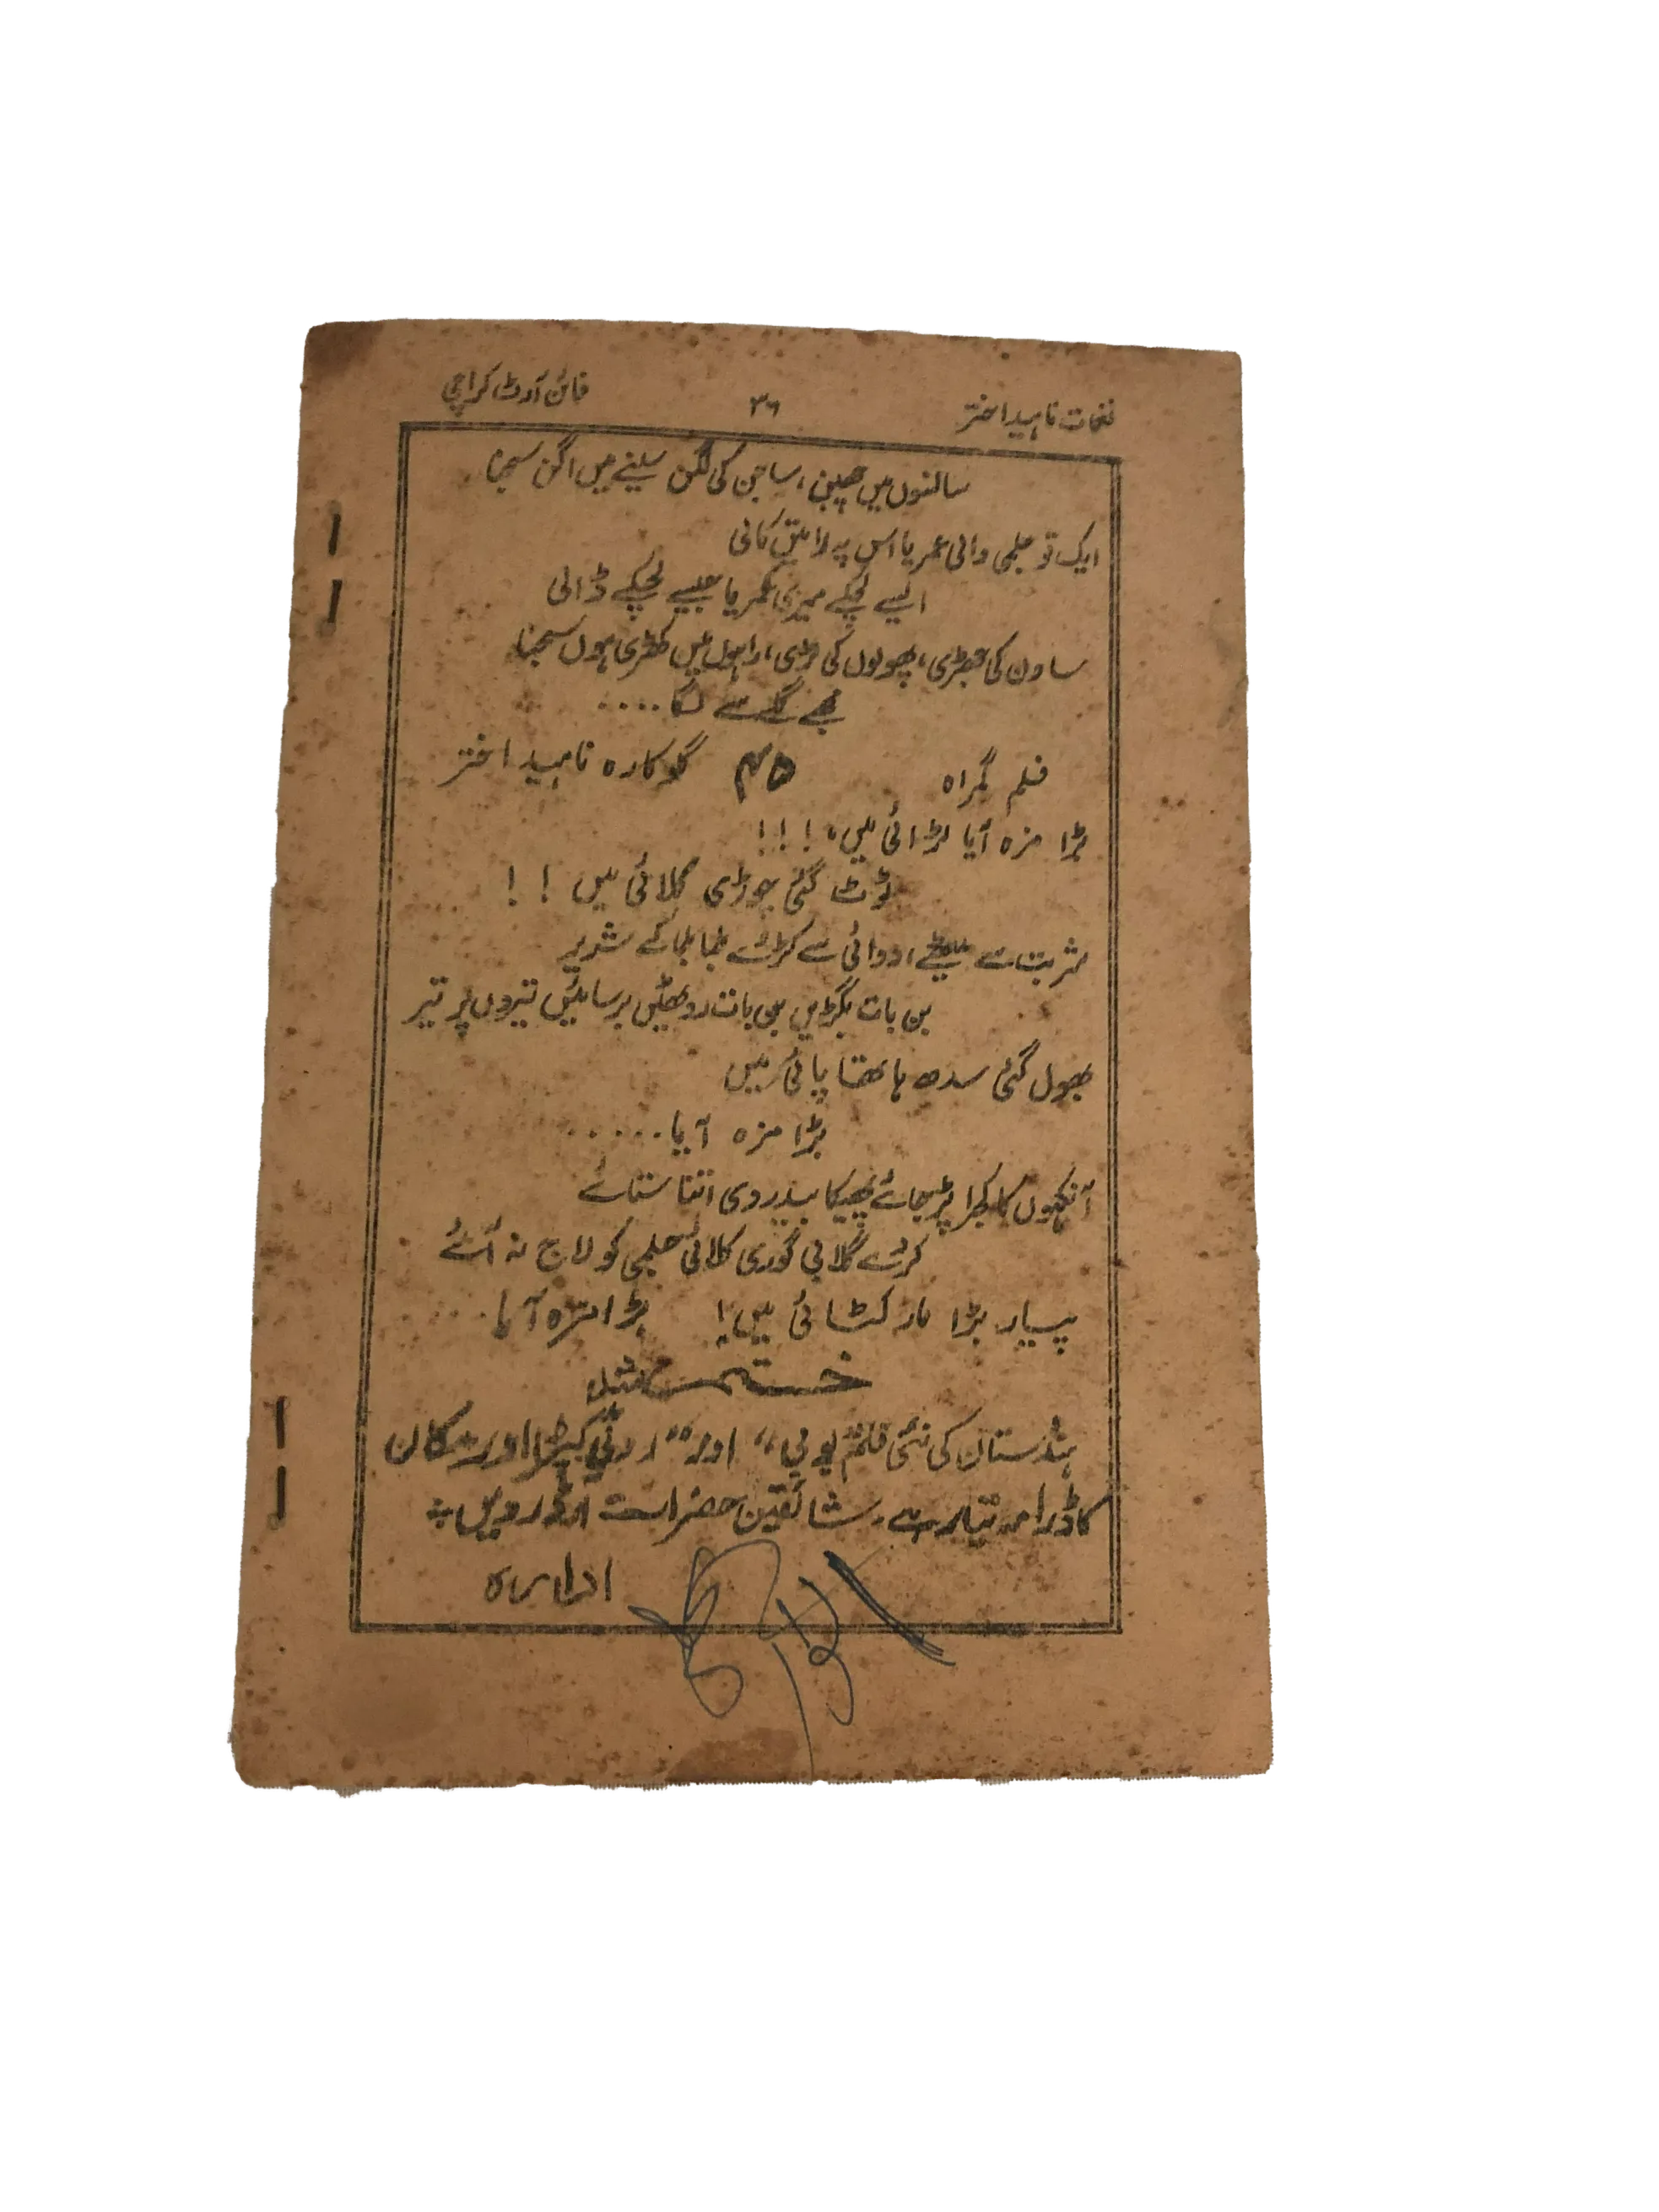 نغمات ناہید اختر ۳۶ فائن آرٹ کراچی
سانسوں میں چھپن، ساجن کی لگن سینے میں اگن سجنا
ایک تو ظلمی والی عمریا اس پہ راتیں کالی
ایسے لچکے میری کمریا جیسے لچکے ڈالی
ساون کی جھڑی، پھولوں کی لڑی، راہوں میں کھڑی ہوں سجنا
مجھے گلے سے لگا ....
فلم گمراہ ۴۵ گلوکارہ ناہید اختر
بڑا مزہ آیا لڑائی میں، !!!
ٹوٹ گئی چوڑی کلائی میں !!
شربت سے میٹھے، دوائی سے کڑوے
بن بات بگڑیں بن بات روٹھیں برسائیں تیروں پر تیر
بھول گئی سدھ ہاتھا پائی میں
بڑا مزہ آیا .....
آنکھوں کا کجرا پڑ جائے پھیکا بیدردی اتنا ستائے
کرے گلابی گوری کلائی ظلمی کو لاج نہ آئے
پیار بڑا مار کٹائی میں! بڑا مزہ آیا ....
ختم شد
ہندستان کی نئی فلم "بوبی" اور "روٹی کپڑا اور مکان
کا ڈرامہ تیار ہے۔ شائقین حضرات آرڈر دیں
ادارہ